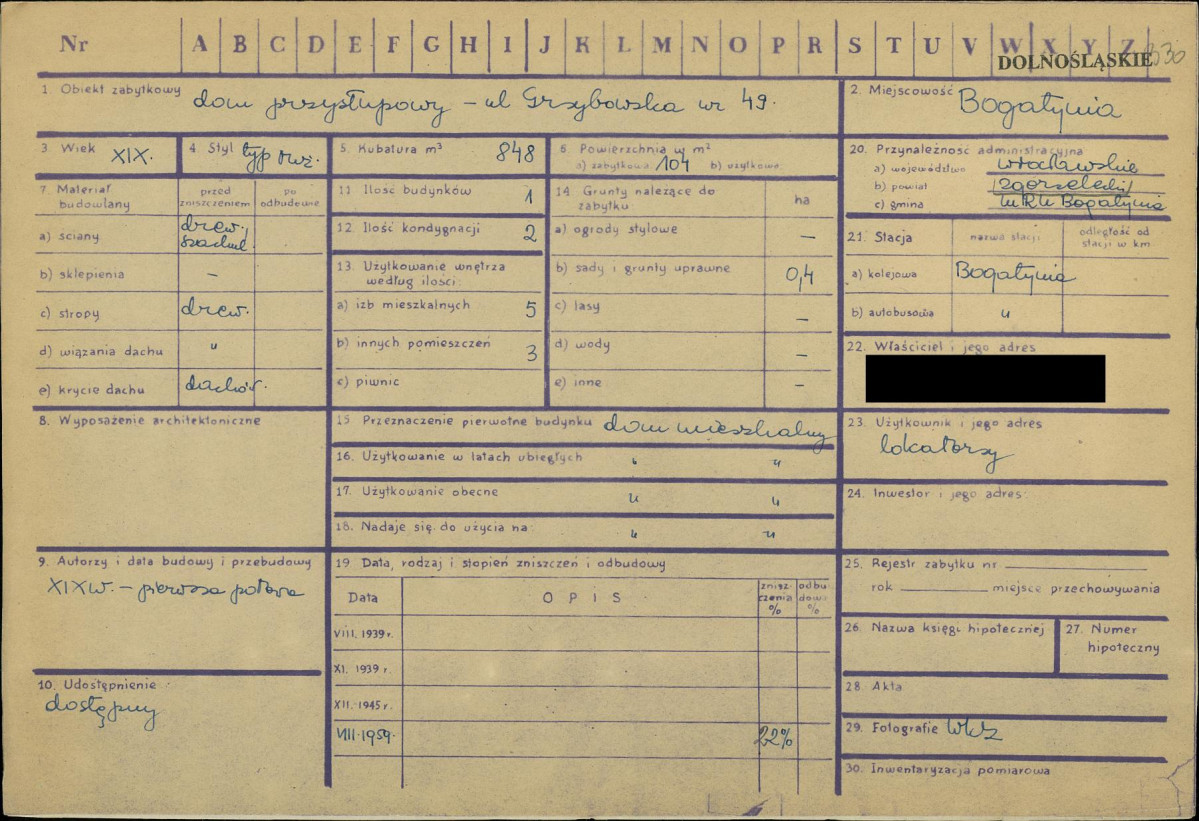 Nr A B C D E F G H I J K L M N O P R S T U V W X Y Z
DOLNOŚLĄSKIE
1. Obiekt zabytkowy dom przysłupowy – ul Grzybowska nr 49.
2. Miejscowość Bogatynia
3. Wiek XIX.
4. Styl typ
5. Kubatura m³ 848
6. Powierzchnia w m²
a) zabytkowa 104 b) użytkowa
7. Materiał budowlany
przed zniszczeniem
po odbudowie
a) ściany drew.,
b) sklepienia –
c) stropy drew.
d) wiązania dachu "
e) krycie dachu dachów.
11. Ilość budynków 1
12. Ilość kondygnacji 2
13. Użytkowanie wnętrza
według ilości:
a) izb mieszkalnych 5
b) innych pomieszczeń 3
c) piwnic
14. Grunty należące do
zabytku:
ha
a) ogrody stylowe –
b) sady i grunty uprawne 0,4
c) lasy –
d) wody –
e) inne –
20. Przynależność administracyjna
a) województwo wrocławskie
b) powiat zgorzelecki
c) gmina Bogatynia
21. Stacja
nazwa stacji
odległość od
stacji w km
a) kolejowa Bogatynia
b) autobusowa "
22. Właściciel i jego adres
8. Wyposażenie architektoniczne
15. Przeznaczenie pierwotne budynku dom mieszkalny
16. Użytkowanie w latach ubiegłych " "
17. Użytkowanie obecne " "
18. Nadaje się do użycia na: " "
23. Użytkownik i jego adres
lokatorzy
24. Inwestor i jego adres:
9. Autorzy i data budowy i przebudowy
XIX w. – pierwsza połowa
10. Udostępnienie
dostępny
19. Data, rodzaj i stopień zniszczeń i odbudowy
Data
OPIS
znisz-
czenia
%
odbu
dowa
%
VIII. 1939 r.
XI. 1939 r.
XII. 1945 r.
VIII. 1959. 22%
25. Rejestr zabytku nr
rok miejsce przechowywania
26. Nazwa księgi hipotecznej
27. Numer
hipoteczny
28. Akta
29. Fotografie WKZ
30. Inwentaryzacja pomiarowa